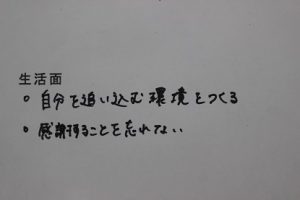 生活面
○ 自分を追い込む環境をつくる
○ 感謝することを忘れない